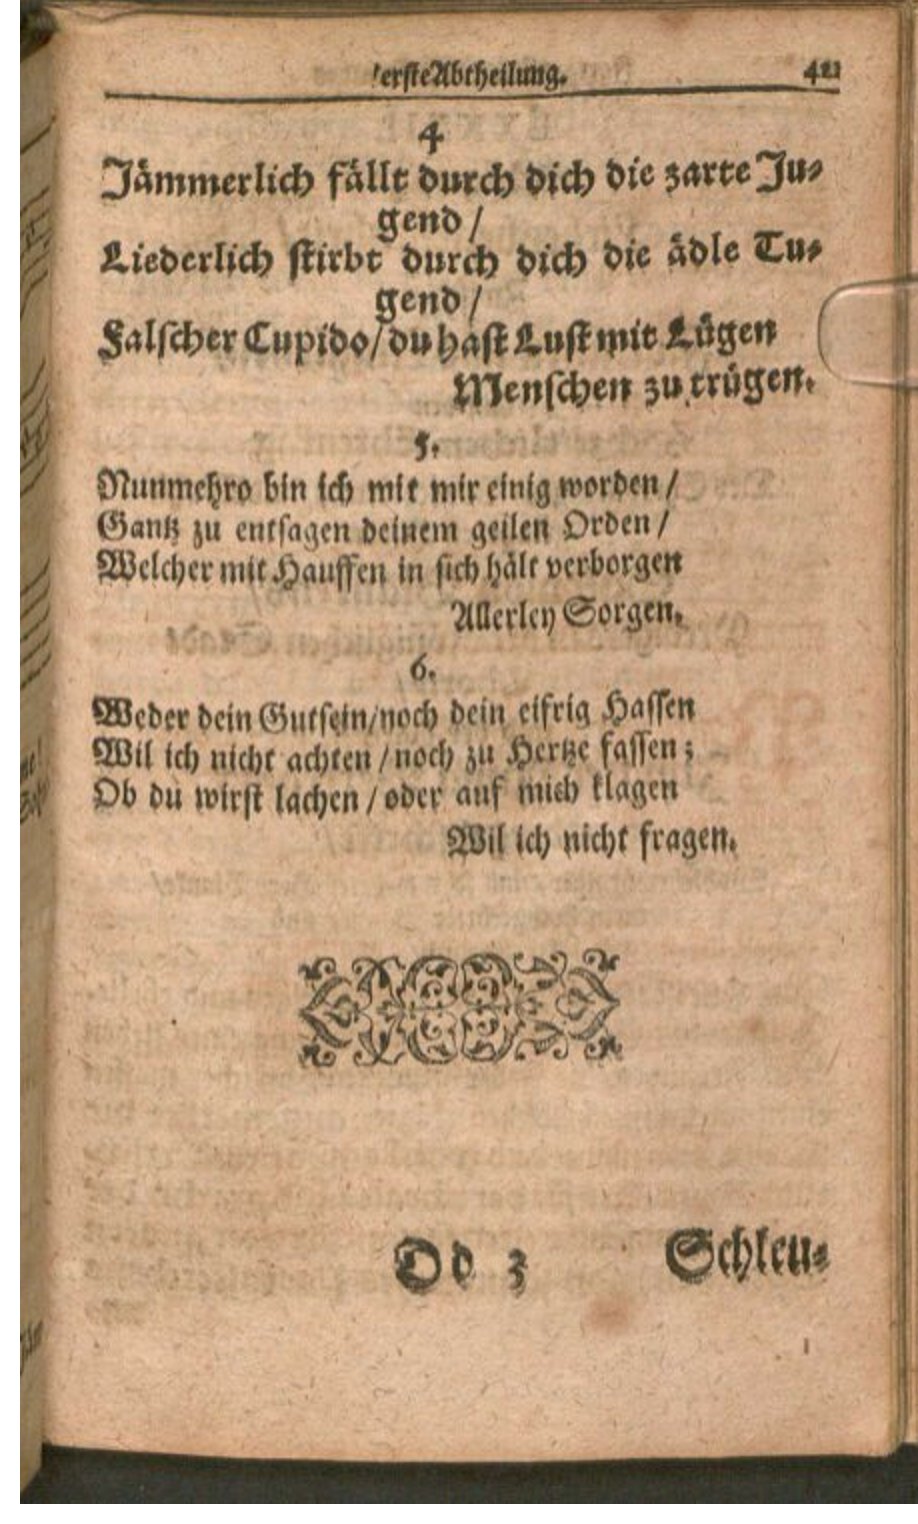 /ersteAbtheilung. 421
4
Jämmerlich fällt durch dich die zarte Ju-
gend /
Liederlich stirbt durch dich die ädle Tu-
gend /
Falscher Cupido/du hast Lust mit Lügen
Menschen zu trügen.
5.
Nunmehro bin ich mit mir einig worden /
Gantz zu entsagen deinem geilen Orden /
Welcher mit Hauffen in sich hält verborgen
Allerley Sorgen.
6.
Weder dein Gutsein/noch dein eifrig Hassen
Wil ich nicht achten / noch zu Hertze fassen;
Ob du wirst lachen / oder auf mich klagen
Wil ich nicht fragen.
Dd 3 Schleu-